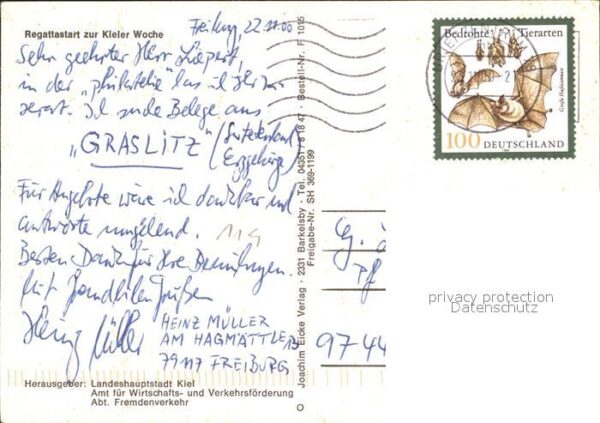 Regattastart zur Kieler Woche
Freiburg 22.11.00
Sehr geehrter Herr Liepert,
in der „Philatelie“ las ich Ihr
Inserat. Ich suche Belege aus
„GRASLITZ“ (Sudetenland/
Erzgebirge)
Für Angebote wäre ich dankbar und
antworte umgehend.
119
Besten Dank für Ihre Bemühungen.
Mit freundlichen Grüßen
Heinz Müller
HEINZ MÜLLER
AM HAGMÄTTLE 13
79117 FREIBURG
Herausgeber: Landeshauptstadt Kiel
Amt für Wirtschafts- und Verkehrsförderung
Abt. Fremdenverkehr
Joachim Eicke Verlag · 2331 Barkelsby · Tel. 04351/8 18 47 · Bestell-Nr. F 1015
Freigabe-Nr. SH 369-1199
Bedrohte Tierarten
Große Hufeisennase
100 DEUTSCHLAND
privacy protection
Datenschutz
9744